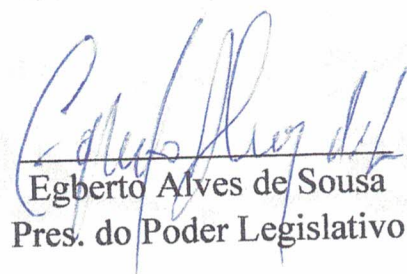 Egberto Alves de Sousa
Pres. do Poder Legislativo